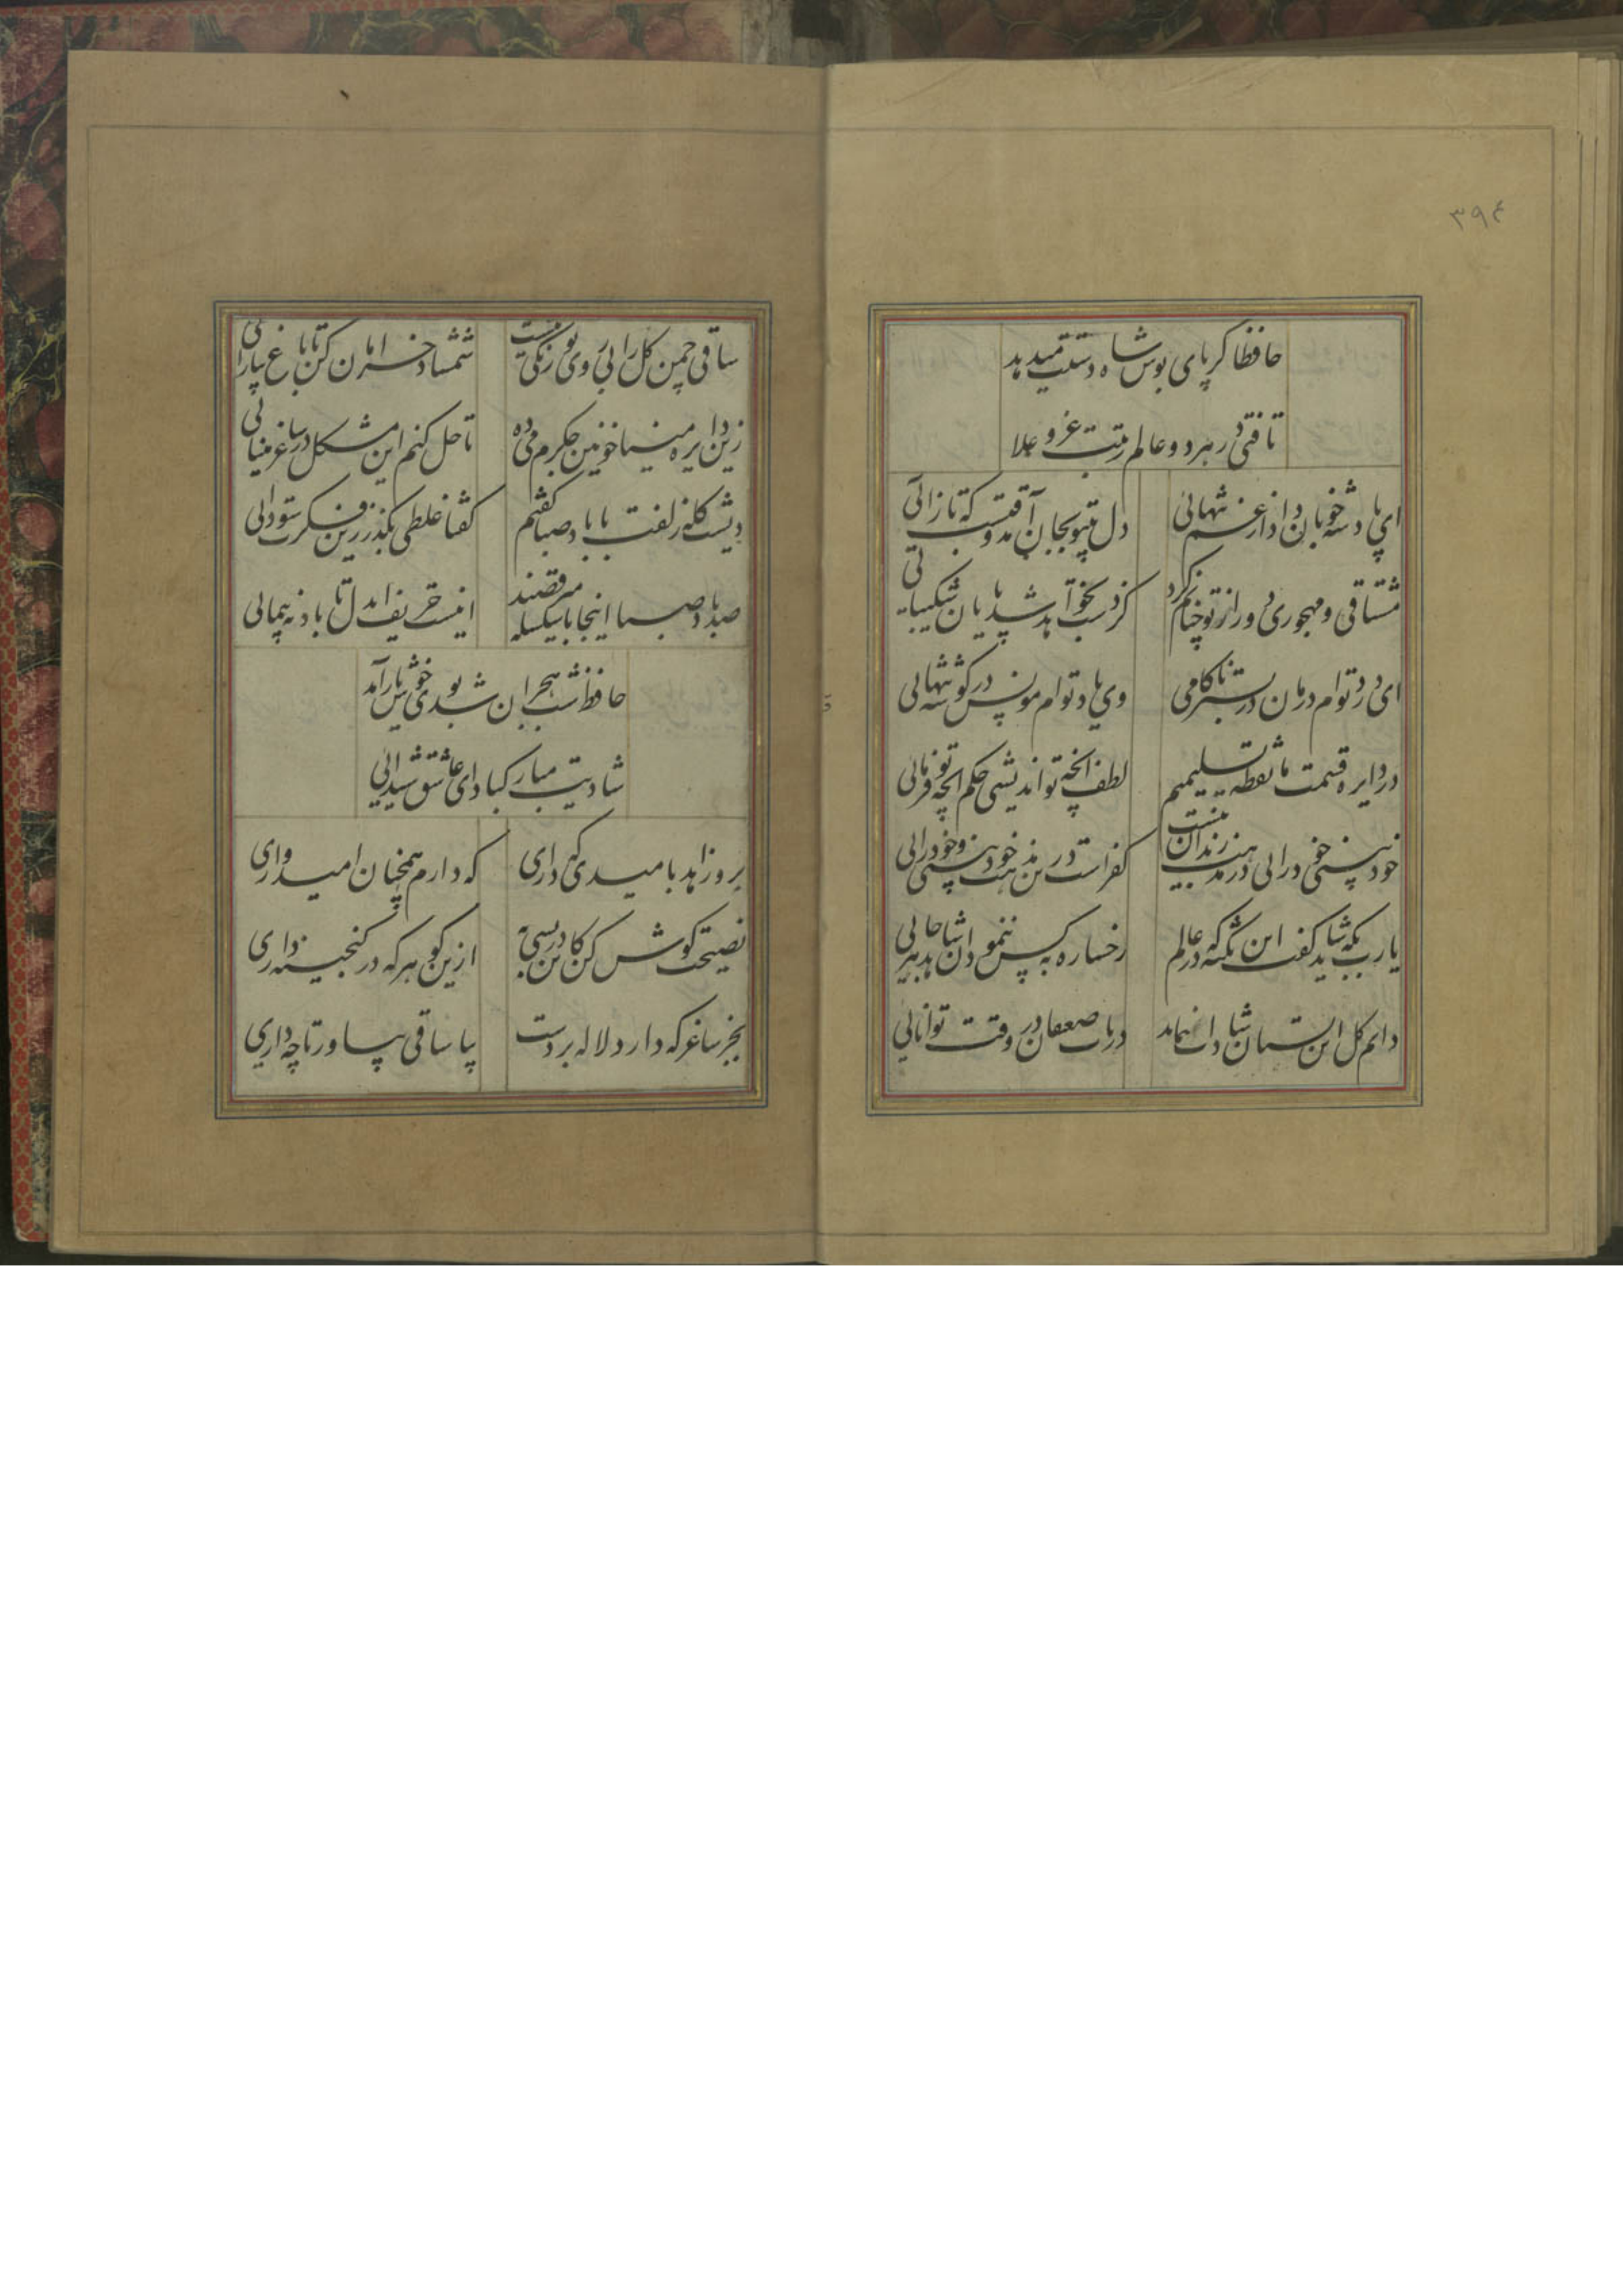 ۳۹۴
حافظا گر پای بوس شاه دستت میدهد
یافتی در هر دو عالم رتبت عز و علا
ای پادشه خوبان داد از غم تنهائی
دل بیتو بجان آمد وقتست که بازآئی
مشتاقی و مهجوری دور از تو چنانم کرد
کز دست بخواهد شد پایان شکیبائی
ای درد توام درمان در بستر ناکامی
وی یاد توام مونس در گوشه تنهائی
در دایره قسمت ما نقطه تسلیمیم
لطف آنچه تو اندیشی حکم آنچه تو فرمائی
خودبینی و خودرائی در مذهب رندان نیست
کفر است درین مذهب خودبینی و خودرائی
یارب بکه شاید گفت این نکته که در عالم
رخساره به کس ننمود آن شاهد هرجائی
دایم گل این بستان شاداب نمیماند
دریاب ضعیفان در وقت توانائی
ساقی چمن گل را بی روی تو رنگی نیست
شمشاد خرامان کن تا باغ بیارائی
زین دایره مینا خونین جگرم می ده
تا حل کنم این مشکل در ساغر مینائی
دیشب گله زلفت با باد صبا گفتم
گفتا غلطی بگذر زین فکرت سودائی
صد باد صبا اینجا با سلسله میرقصند
اینست حریف ای دل تا باد نه پیمائی
حافظ شب هجران شد بوی خوش یار آمد
شادیت مبارک باد ای عاشق شیدائی
برو زاهد بامیدی که داری
که دارم همچنان امیدواری
نصیحت گوش کن کاین در بسی به
ازین گوهر که در گنجینه داری
بجز ساغر که دارد لاله بر دست
بیا ساقی بیاور تا چه داری